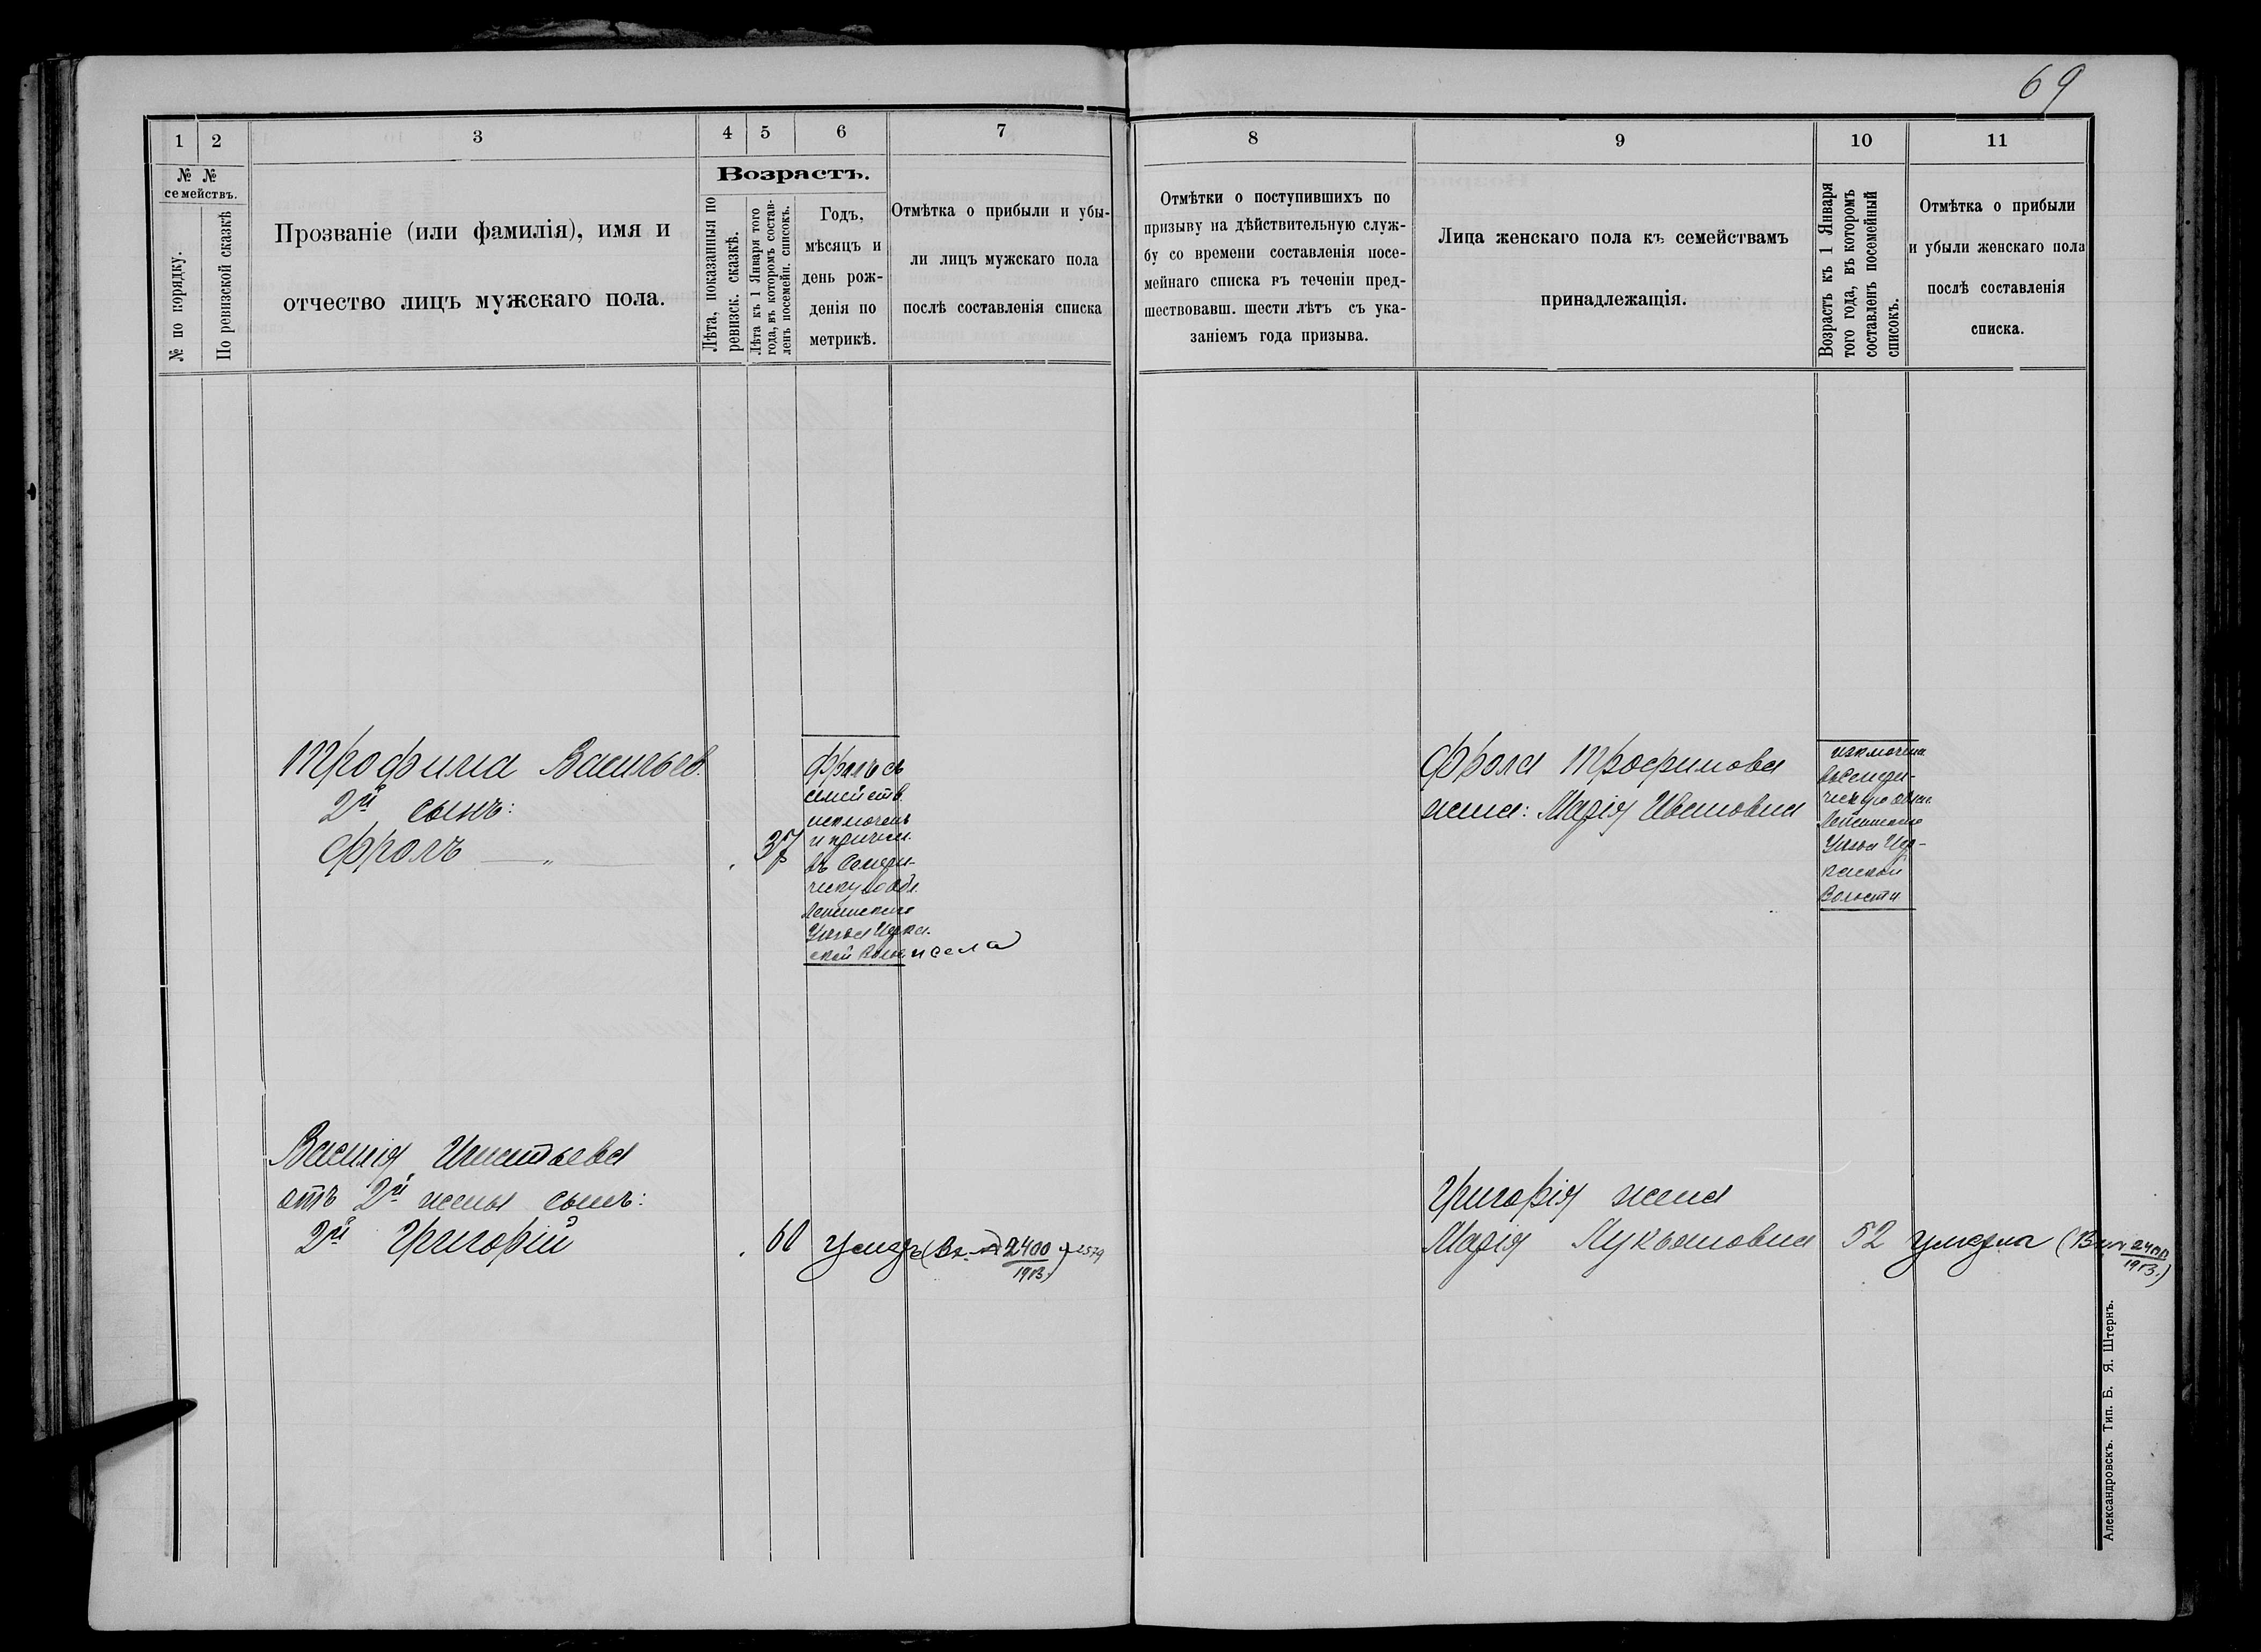 69
1
2
3
4
5
6
7
№ №
семействъ.
№ по порядку.
По ревизской сказкѣ
Прозваніе (или фамилія), имя и
отчество лицъ мужскаго пола.
Возрастъ.
Лѣта, показанныя по
ревизск. сказкѣ.
Лѣта къ 1 Января того
года, въ которомъ состав-
ленъ посемейн. списокъ.
Годъ,
мѣсяцъ и
день рож-
денія по
метрикѣ.
Отмѣтка о прибыли и убы-
ли лицъ мужскаго пола
послѣ составленія списка
Трофима Васильев.
2й сынъ:
Фролъ — „ —
37
Фролъ съ
семейств.
исключенъ
и причисл.
въ Семире-
ческую обл.
Лепсинскаго
Уѣзда
села
Василія Игнатьева
отъ 2й жены сынъ:
2й Григорій
60
умеръ (Вх. № 2400
1913)
2579
8
9
10
11
Отмѣтки о поступившихъ по
призыву на дѣйствительную служ-
бу со времени составленія посе-
мейнаго списка въ теченіи пред-
шествовавш. шести лѣтъ съ ука-
заніемъ года призыва.
Лица женскаго пола къ семействамъ
принадлежащія.
Возрастъ къ 1 Января
того года, въ которомъ
составленъ посемейный
списокъ.
Отмѣтка о прибыли
и убыли женскаго пола
послѣ составленія
списка.
Фрола Трофимова
жена: Марія Ивановна
исключена
въ Семире-
ческую облас.
Лепсинскаго
Уѣзда
Волости
Григорія жена
Марія Лукьяновна
52
умерла (Вх. № 2400
1913.)
Александровскъ. Тип. Б. Я. Штернъ.